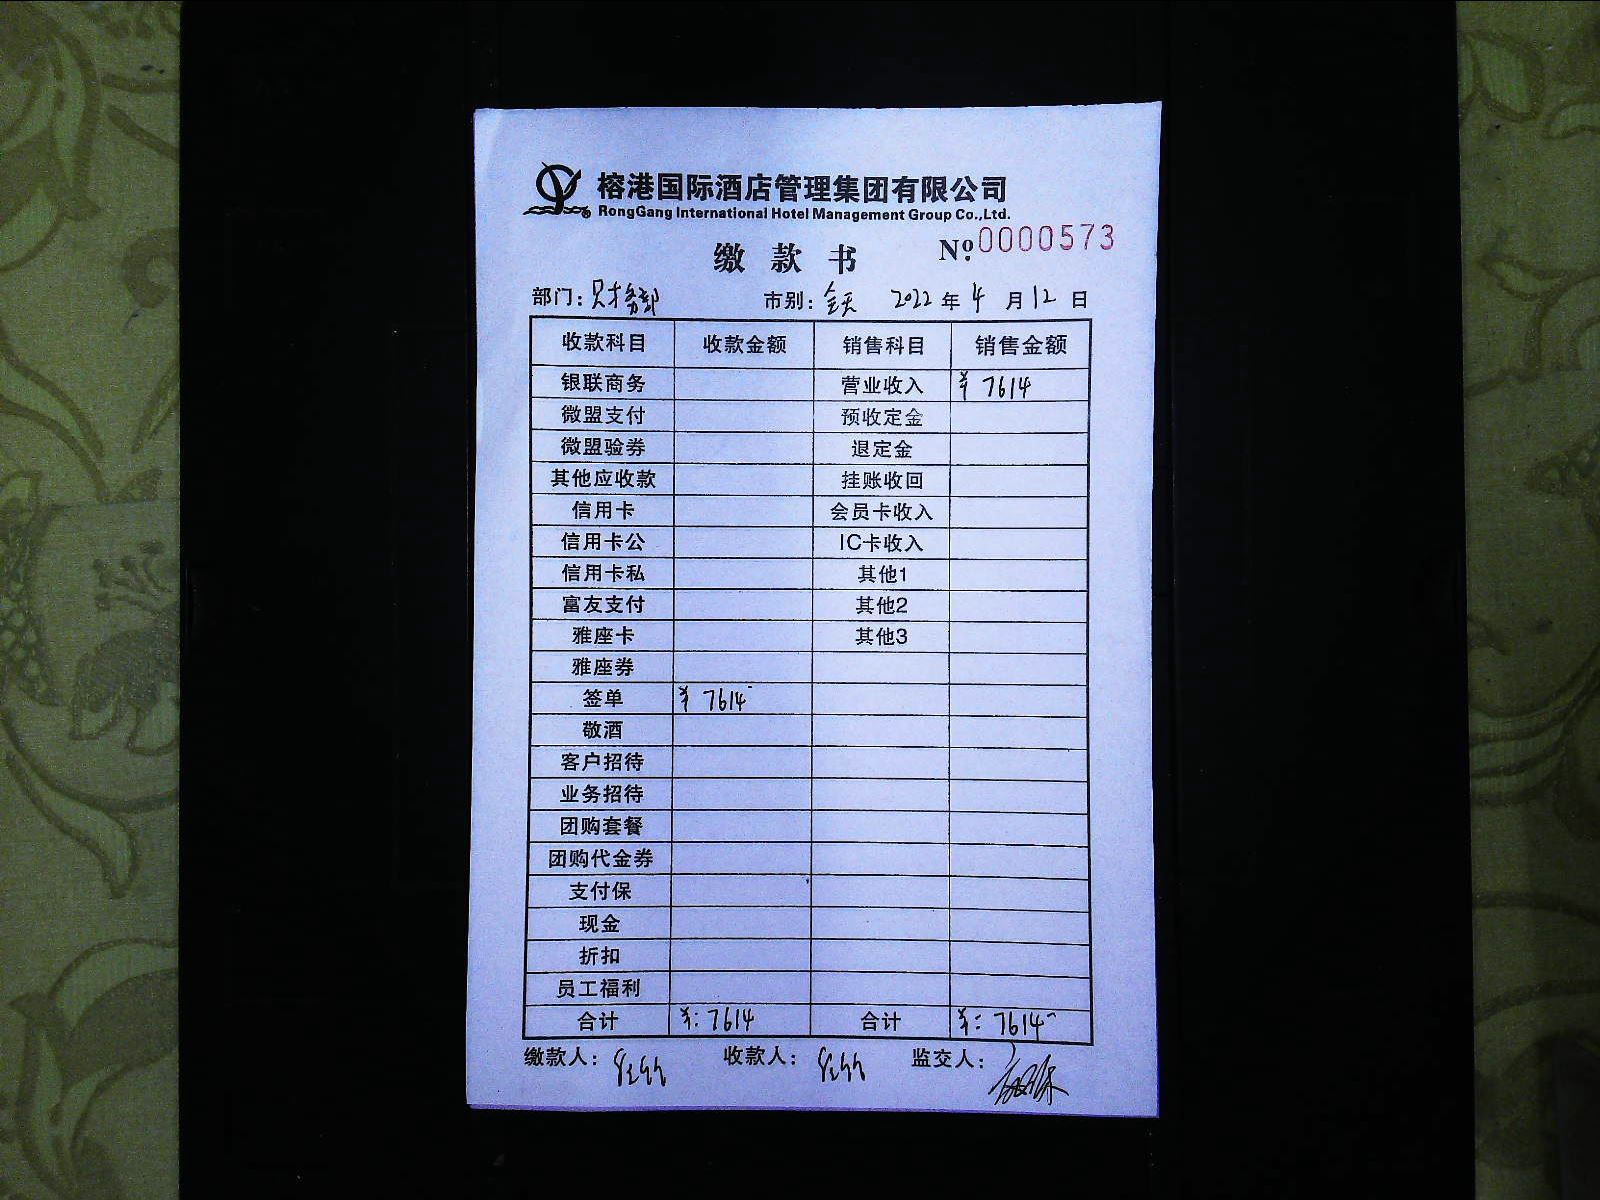 榕港国际酒店管理集团有限公司
RongGang International Hotel Management Group Co.,Ltd.
缴款书 № 0000573
部门：财务部 市别：全天 2022年4月12日
收款科目 收款金额 销售科目 销售金额
银联商务 营业收入 ¥ 7614
微盟支付 预收定金
微盟验券 退定金
其他应收款 挂账收回
信用卡 会员卡收入
信用卡公 IC卡收入
信用卡私 其他1
富友支付 其他2
雅座卡 其他3
雅座券
签单 ¥ 7614-
敬酒
客户招待
业务招待
团购套餐
团购代金券
支付保
现金
折扣
员工福利
合计 ¥: 7614 合计 ¥: 7614-
缴款人： 收款人： 监交人：